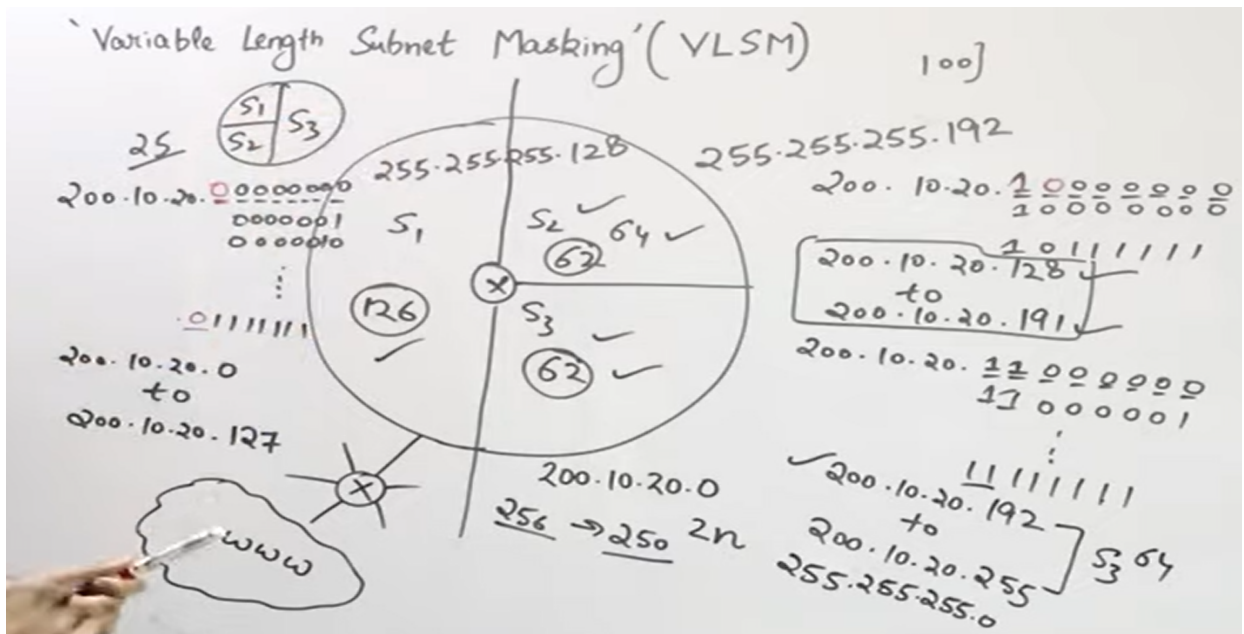 'Variable Length Subnet Masking' (VLSM)
100]
S1
S2
S3
25
200.10.20.00000000
0000001
0000010
⋮
.01111111
200.10.20.0
to
200.10.20.127
255.255.255.128
S1
126 ✓
S2 ✓
64 ✓
62
X
S3 ✓
62 ✓
X
www
200.10.20.0
256 → 250 2n
255.255.255.192
200.10.20.10000000
10000000
10111111
200.10.20.128 ✓
to
200.10.20.191 ✓
200.10.20.11000000
11000001
⋮
11111111
✓ 200.10.20.192
to
200.10.20.255
S3 64
255.255.255.0